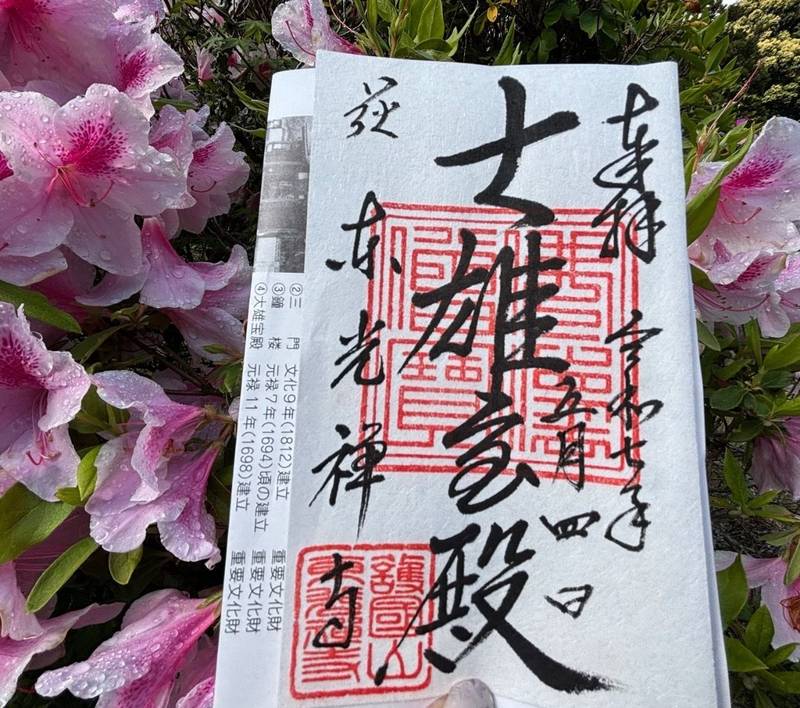 奉拝 令和七年
五月四日
大雄宝殿
萩 東光禅寺
護國山
東光寺
②三 門 文化9年(1812)建立 重要文化財
③鐘 楼 元禄7年(1694)頃の建立 重要文化財
④大雄宝殿 元禄11年(1698)建立 重要文化財